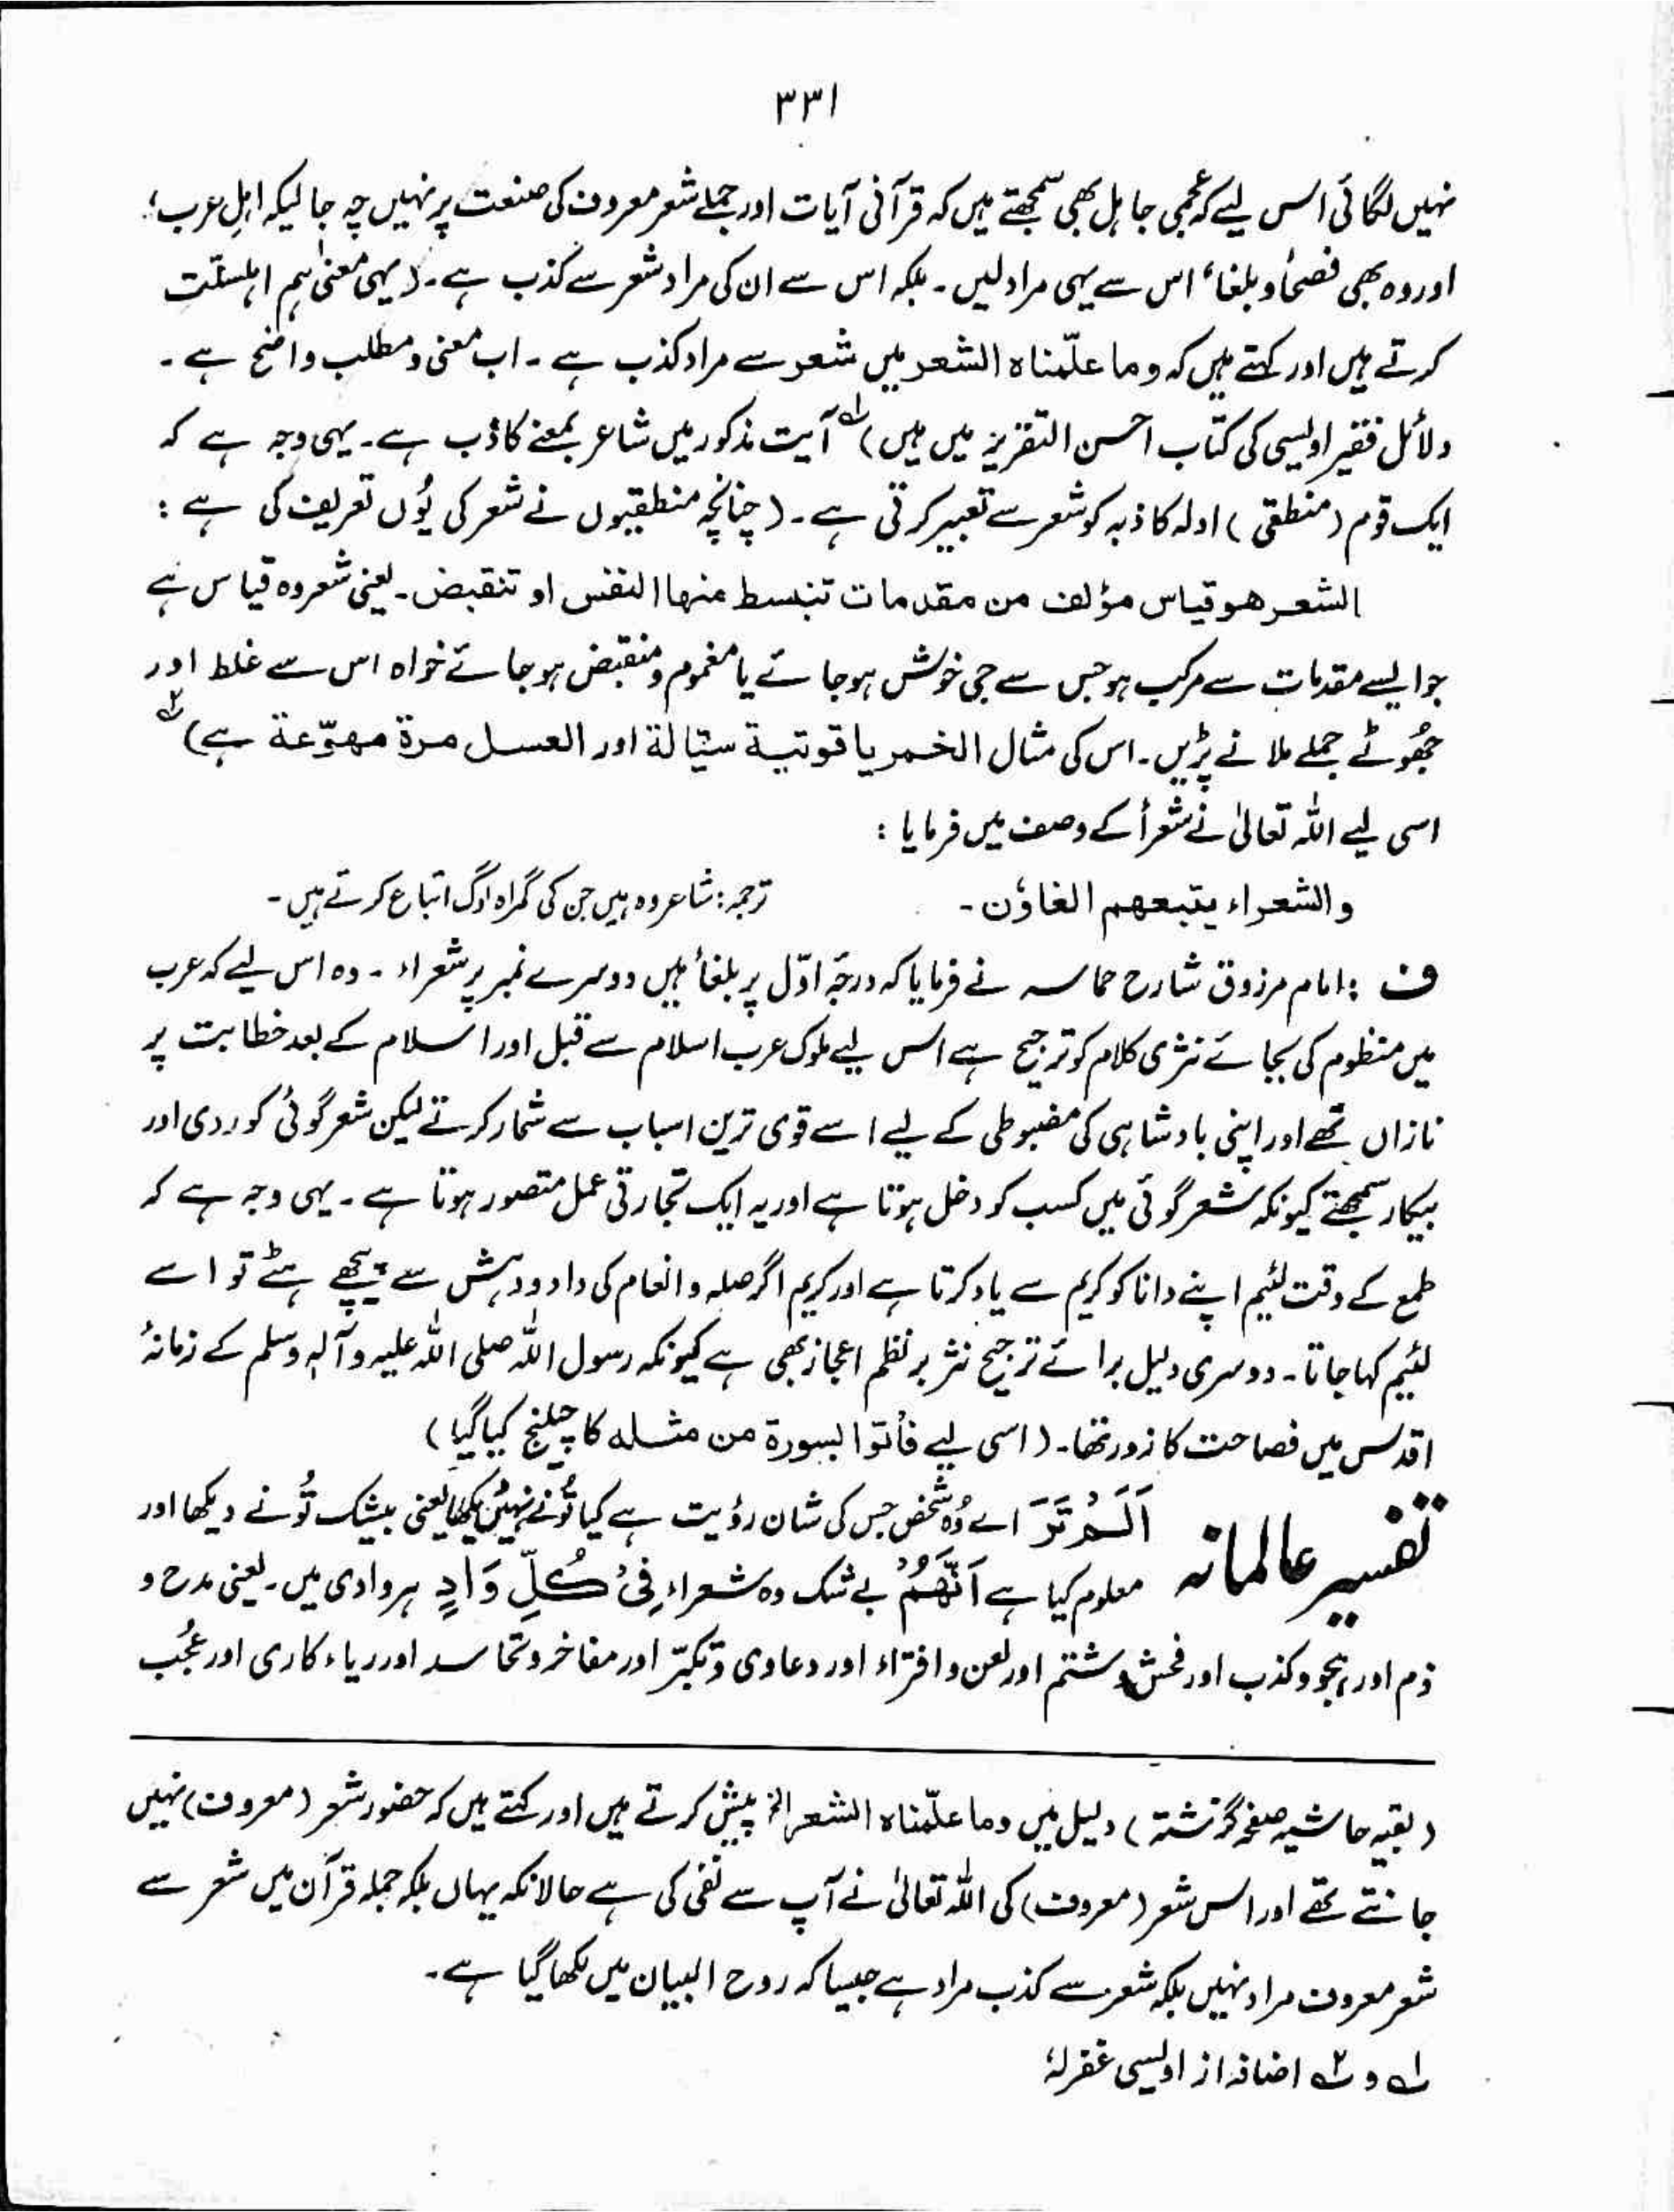 ۳۳۱
نہیں لگائی اس لیے کہ عجمی جاہل بھی سمجھتے ہیں کہ قرآنی آیات اور جملے شعر معروف کی صنعت پر نہیں چہ جائیکہ اہلِ عرب؛
اور وہ بھی فصحأ و بلغأ، اس سے یہی مراد لیں۔ بلکہ اس سے ان کی مراد شعر سے کذب ہے۔ (یہی معنیٰ ہم اہلسنّت
کرتے ہیں اور کہتے ہیں کہ وما علّمناہ الشعر میں شعر سے مراد کذب ہے۔ اب معنی و مطلب واضح ہے۔
دلائل فقیر اویسی کی کتاب احسن التقریر میں ہیں)؎۱ آیت مذکور میں شاعر بمعنے کاذب ہے۔ یہی وجہ ہے کہ
ایک قوم (منطقی) ادلہ کاذبہ کو شعر سے تعبیر کرتی ہے۔ (چنانچہ منطقیوں نے شعر کی یُوں تعریف کی ہے :
الشعر ھو قیاس مؤلف من مقدمات تنبسط منھا النفس او تنقبض۔ یعنی شعر وہ قیاس ہے
جو ایسے مقدمات سے مرکب ہو جس سے جی خوش ہو جائے یا مغموم و منقبض ہو جائے خواہ اس سے غلط اور
جُھوٹے جملے ملانے پڑیں۔ اس کی مثال الخمر یاقوتیۃ سیّالۃ اور العسل مرۃ مھوّعۃ ہے)؎۲
اسی لیے اللہ تعالیٰ نے شعرأ کے وصف میں فرمایا :
والشعراء یتبعھم الغاوٗن۔ ترجمہ: شاعر وہ ہیں جن کی گمراہ لوگ اتباع کرتے ہیں۔
ف : امام مرزوق شارح حماسہ نے فرمایا کہ درجۂ اوّل پر بلغأ ہیں دوسرے نمبر پر شعراء۔ وہ اس لیے کہ عرب
میں منظوم کی بجائے نثری کلام کو ترجیح ہے اس لیے ملوک عرب اسلام سے قبل اور اسلام کے بعد خطابت پر
نازاں تھے اور اپنی بادشاہی کی مضبوطی کے لیے اسے قوی ترین اسباب سے شمار کرتے لیکن شعر گوئی کو ردی اور
بیکار سمجھتے کیونکہ شعر گوئی میں کسب کو دخل ہوتا ہے اور یہ ایک تجارتی عمل متصور ہوتا ہے۔ یہی وجہ ہے کہ
طمع کے وقت لئیم اپنے دانا کو کریم سے یاد کرتا ہے اور کریم اگر صلہ و انعام کی داد و دہش سے پیچھے ہٹے تو اسے
لئیم کہا جاتا۔ دوسری دلیل برائے ترجیح نثر بر نظم اعجاز بھی ہے کیونکہ رسول اللہ صلی اللہ علیہ وآلہٖ وسلم کے زمانۂ
اقدس میں فصاحت کا زور تھا۔ (اسی لیے فأتوا بسورۃ من مثلہ کا چیلنج کیا گیا)
تفسیر عالمانہ اَلَمْ تَرَ اے وُہ شخص جس کی شان رؤیت ہے کیا تُو نے نہیں دیکھا یعنی بیشک تُو نے دیکھا اور
معلوم کیا ہے اَنَّھُمْ بے شک وہ شعراء فِیْ کُلِّ وَادٍ ہر وادی میں۔ یعنی مدح و
ذم اور ہجو و کذب اور فحش و شتم اور لعن و افتراء اور دعاوی و تکبّر اور مفاخر و تحاسد اور ریاء کاری اور عُجُب
(بقیہ حاشیہ صفحہ گزشتہ) دلیل میں وما علّمناہ الشعر الخ پیش کرتے ہیں اور کہتے ہیں کہ حضور شعر (معروف) نہیں
جانتے تھے اور اس شعر (معروف) کی اللہ تعالیٰ نے آپ سے نفی کی ہے حالانکہ یہاں بلکہ جملہ قرآن میں شعر سے
شعر معروف مراد نہیں بلکہ شعر سے کذب مراد ہے جیسا کہ روح البیان میں لکھا گیا ہے۔
؎۱ و ؎۲ اضافہ از اویسی غفرلہٗ